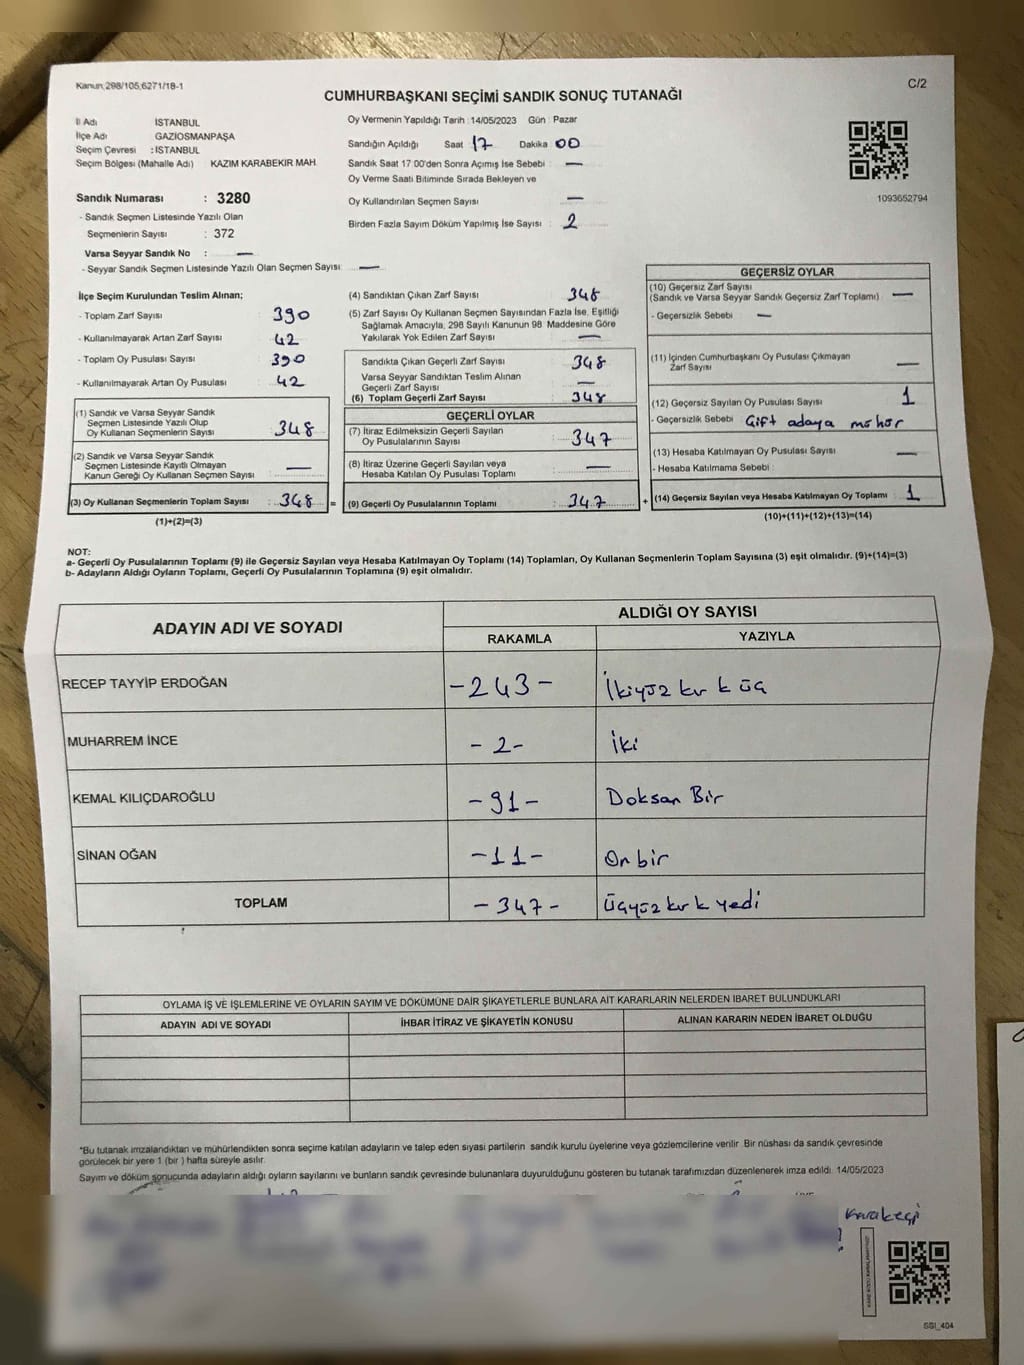 Kanun;298/105;6271/18-1
C/2
CUMHURBAŞKANI SEÇİMİ SANDIK SONUÇ TUTANAĞI
İl Adı İSTANBUL
İlçe Adı GAZİOSMANPAŞA
Seçim Çevresi : İSTANBUL
Seçim Bölgesi (Mahalle Adı) : KAZIM KARABEKİR MAH.
Sandık Numarası : 3280
- Sandık Seçmen Listesinde Yazılı Olan
Seçmenlerin Sayısı : 372
Varsa Seyyar Sandık No : —
- Seyyar Sandık Seçmen Listesinde Yazılı Olan Seçmen Sayısı: —
Oy Vermenin Yapıldığı Tarih : 14/05/2023 Gün : Pazar
Sandığın Açıldığı Saat 17 Dakika 00
Sandık Saat 17:00'den Sonra Açımış İse Sebebi : —
Oy Verme Saati Bitiminde Sırada Bekleyen ve
Oy Kullandırılan Seçmen Sayısı : —
Birden Fazla Sayım Döküm Yapılmış İse Sayısı : 2
1093652794
İlçe Seçim Kurulundan Teslim Alınan;
- Toplam Zarf Sayısı : 390
- Kullanılmayarak Artan Zarf Sayısı : 42
- Toplam Oy Pusulası Sayısı : 390
- Kullanılmayarak Artan Oy Pusulası : 42
(1) Sandık ve Varsa Seyyar Sandık
Seçmen Listesinde Yazılı Olup
Oy Kullanan Seçmenlerin Sayısı : 348
(2) Sandık ve Varsa Seyyar Sandık
Seçmen Listesinde Kayıtlı Olmayan
Kanun Gereği Oy Kullanan Seçmen Sayısı : —
(3) Oy Kullanan Seçmenlerin Toplam Sayısı : 348 =
(1)+(2)=(3)
(4) Sandıktan Çıkan Zarf Sayısı : 348
(5) Zarf Sayısı Oy Kullanan Seçmen Sayısından Fazla İse, Eşitliği
Sağlamak Amacıyla, 298 Sayılı Kanunun 98. Maddesine Göre
Yakılarak Yok Edilen Zarf Sayısı : —
Sandıkta Çıkan Geçerli Zarf Sayısı : 348
Varsa Seyyar Sandıktan Teslim Alınan
Geçerli Zarf Sayısı : —
(6) Toplam Geçerli Zarf Sayısı : 348
GEÇERLİ OYLAR
(7) İtiraz Edilmeksizin Geçerli Sayılan
Oy Pusulalarının Sayısı : 347
(8) İtiraz Üzerine Geçerli Sayılan veya
Hesaba Katılan Oy Pusulası Toplamı : —
(9) Geçerli Oy Pusulalarının Toplamı : 347 +
GEÇERSİZ OYLAR
(10) Geçersiz Zarf Sayısı
(Sandık ve Varsa Seyyar Sandık Geçersiz Zarf Toplamı) : —
- Geçersizlik Sebebi : —
(11) İçinden Cumhurbaşkanı Oy Pusulası Çıkmayan
Zarf Sayısı : —
(12) Geçersiz Sayılan Oy Pusulası Sayısı : 1
- Geçersizlik Sebebi : Çift adaya mühür
(13) Hesaba Katılmayan Oy Pusulası Sayısı : —
- Hesaba Katılmama Sebebi :
(14) Geçersiz Sayılan veya Hesaba Katılmayan Oy Toplamı : 1
(10)+(11)+(12)+(13)=(14)
NOT:
a- Geçerli Oy Pusulalarının Toplamı (9) ile Geçersiz Sayılan veya Hesaba Katılmayan Oy Toplamı (14) Toplamları, Oy Kullanan Seçmenlerin Toplam Sayısına (3) eşit olmalıdır. (9)+(14)=(3)
b- Adayların Aldığı Oyların Toplamı, Geçerli Oy Pusulalarının Toplamına (9) eşit olmalıdır.
ADAYIN ADI VE SOYADI
ALDIĞI OY SAYISI
RAKAMLA YAZIYLA
RECEP TAYYİP ERDOĞAN -243- İkiyüz kırk üç
MUHARREM İNCE -2- İki
KEMAL KILIÇDAROĞLU -91- Doksan Bir
SİNAN OĞAN -11- On bir
TOPLAM -347- Üçyüz kırk yedi
OYLAMA İŞ VE İŞLEMLERİNE VE OYLARIN SAYIM VE DÖKÜMÜNE DAİR ŞİKAYETLERLE BUNLARA AİT KARARLARIN NELERDEN İBARET BULUNDUKLARI
ADAYIN ADI VE SOYADI İHBAR İTİRAZ VE ŞİKAYETİN KONUSU ALINAN KARARIN NEDEN İBARET OLDUĞU
*Bu tutanak imzalandıktan ve mühürlendikten sonra seçime katılan adayların ve talep eden siyasi partilerin sandık kurulu üyelerine veya gözlemcilerine verilir. Bir nüshası da sandık çevresinde
görülecek bir yere 1 (bir ) hafta süreyle asılır.
Sayım ve döküm sonucunda adayların aldığı oyların sayılarını ve bunların sandık çevresinde bulunanlara duyurulduğunu gösteren bu tutanak tarafımızdan düzenlenerek imza edildi. 14/05/2023
Karakeçi
SSI_404